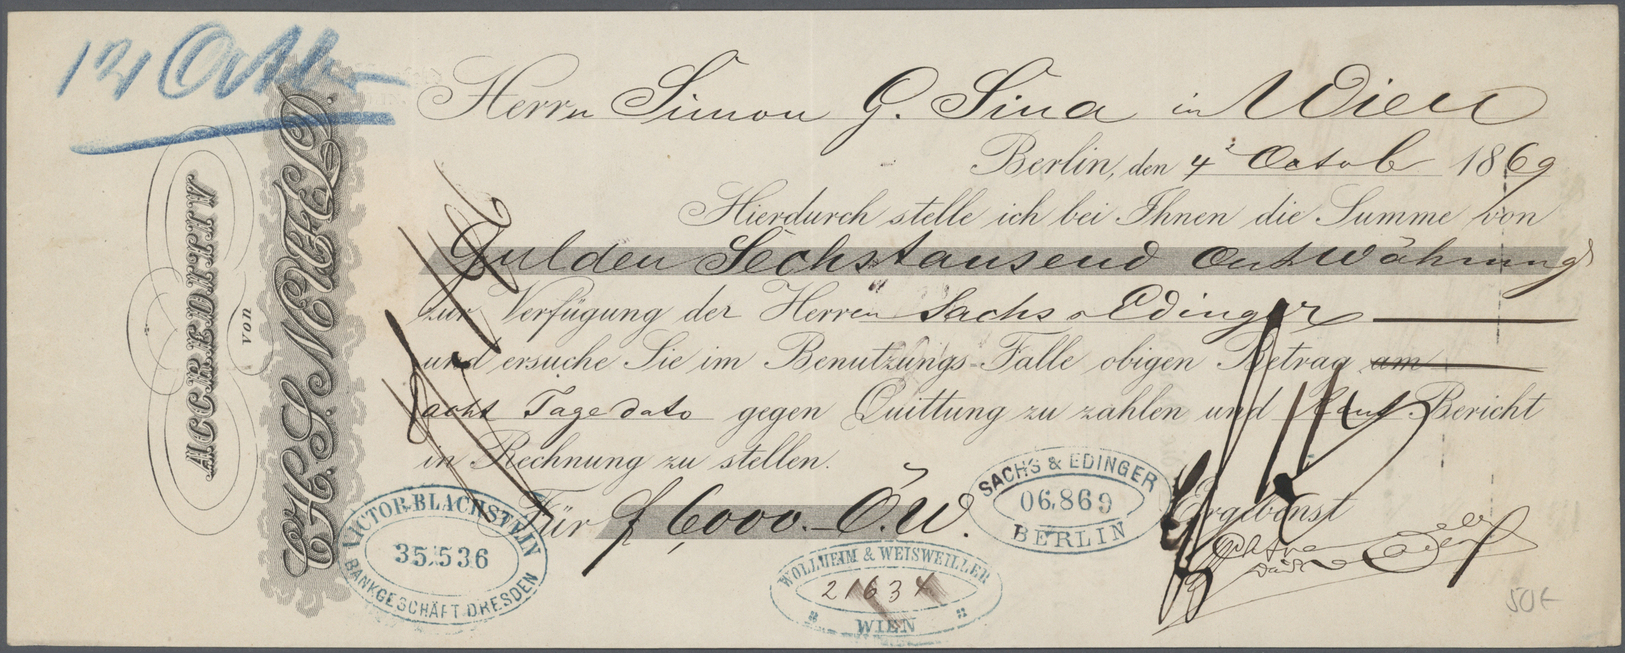 12 Octbr
ACCREDITIV
von
Herrn Simon G. Sina in Wien
Berlin, den 4 Octob 1869
Hierdurch stelle ich bei Ihnen die Summe von
Gulden Sechstausend Oest Währung
zur Verfügung der Herren Sachs & Edinger
und ersuche Sie im Benutzungs-Falle obigen Betrag am
acht Tage dato gegen Quittung zu zahlen und laut Bericht
in Rechnung zu stellen.
Für f 6000.– Ö.W.
Ergebenst
VICTOR BLACHSTEIN
35.536
BANKGESCHÄFT DRESDEN
WOLLHEIM & WEISWEILLER
21634
WIEN
SACHS & EDINGER
06.869
BERLIN
50€